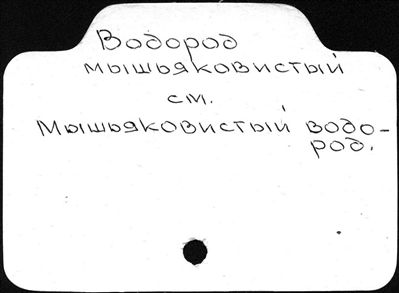 Водород
мышьяковистый
см.
Мышьяковистый водо-
род.